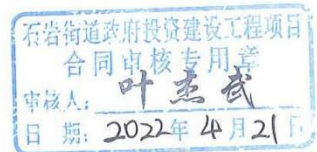 石岩街道政府投资建设工程项目
合同审核专用章
审核人：叶志武
日期：2022年4月21日